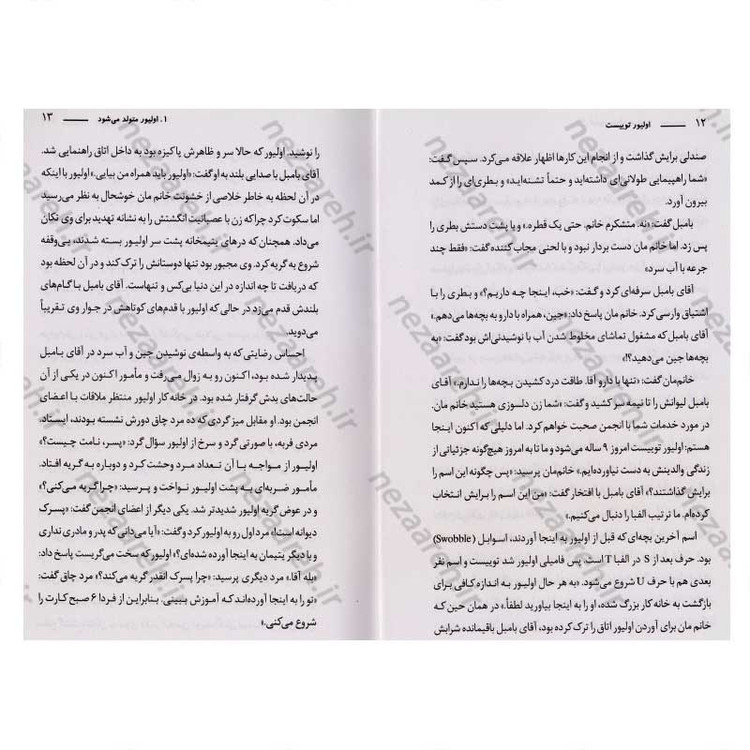 ۱۲ ــــــــ اولیور توییست
صندلی برایش گذاشت و از انجام این کارها اظهار علاقه می‌کرد. سپس گفت:
«شما راهپیمایی طولانی‌ای داشته‌اید و حتماً تشنه‌اید» و بطری‌ای را از کمد
بیرون آورد.
بامبل گفت: «نه. متشکرم خانم. حتی یک قطره.» و با پشت دستش بطری را
پس زد. اما خانم مان دست بردار نبود و با لحنی مجاب کننده گفت: «فقط چند
جرعه با آب سرد»
آقای بامبل سرفه‌ای کرد و گفت: «خب، اینجا چه داریم؟» و بطری را با
اشتیاق وارسی کرد. خانم مان پاسخ داد: «جین، همراه با دارو به بچه‌ها می‌دهم.»
آقای بامبل که مشغول تماشای مخلوط شدن آب با نوشیدنی‌اش بود گفت: «به
بچه‌ها جین می‌دهید؟!»
خانم‌مان گفت: «تنها با دارو آقا. طاقت درد کشیدن بچه‌ها را ندارم.» آقای
بامبل لیوانش را تا نیمه سر کشید و گفت: «شما زن دلسوزی هستید خانم مان.
در مورد خدمات شما با انجمن صحبت خواهم کرد. اما دلیلی که اکنون اینجا
هستم: اولیور توییست امروز ۹ ساله می‌شود و ما تا به امروز هیچ‌گونه جزئیاتی از
زندگی والدینش به دست نیاورده‌ایم.» خانم‌مان پرسید: «پس چگونه این اسم را
برایش گذاشتند؟» آقای بامبل با افتخار گفت: «من این اسم را برایش انتخاب
کرده‌ام. ما ترتیب الفبا را دنبال می‌کنیم.»
اسم آخرین بچه‌ای که قبل از اولیور به اینجا آوردند، اسوابل (Swobble)
بود. حرف بعد از S در الفبا T است. پس فامیلی اولیور شد توییست و اسم نفر
بعدی هم با حرف U شروع می‌شود. «به هر حال اولیور به اندازه کافی برای
بازگشت به خانه کار بزرگ شده، او را به اینجا بیاورید لطفاً.» در همان حین که
خانم مان برای آوردن اولیور اتاق را ترک کرده بود، آقای بامبل باقیمانده شرابش
۱. اولیور متولد می‌شود ــــــــ ۱۳
را نوشید. اولیور که حالا سر و ظاهرش پاکیزه بود به داخل اتاق راهنمایی شد.
آقای بامبل با صدایی بلند به او گفت: «اولیور باید همراه من بیایی.» اولیور با اینکه
در آن لحظه به خاطر خلاصی از خشونت خانم مان خوشحال به نظر می‌رسید
اما سکوت کرد چرا که زن با عصبانیت انگشتش را به نشانه تهدید برای وی تکان
می‌داد. همچنان که درهای یتیمخانه پشت سر اولیور بسته شدند، بی‌وقفه
شروع به گریه کرد. وی مجبور بود تنها دوستانش را ترک کند و در آن لحظه بود
که دریافت تا چه اندازه در این دنیا بی‌کس و تنهاست. آقای بامبل با گام‌های
بلندش قدم می‌زد در حالی که اولیور با قدم‌های کوتاهش در جوار وی تقریباً
می‌دوید.
احساس رضایتی که به واسطه‌ی نوشیدن جین و آب سرد در آقای بامبل
پدیدار شده بود، اکنون رو به زوال می‌رفت و مأمور اکنون در یکی از آن
حالت‌های بدش گرفتار شده بود. در خانه کار اولیور منتظر ملاقات با اعضای
انجمن بود. او مقابل میز گردی که ده مرد چاق دورش نشسته بودند، ایستاد.
مردی فربه، با صورتی گرد و سرخ از اولیور سؤال کرد: «پسر، نامت چیست؟»
اولیور از مواجه با آن تعداد مرد وحشت کرد و دوباره به گریه افتاد.
مأمور ضربه‌ای به پشت اولیور نواخت و پرسید: «چرا گریه می‌کنی؟»
و در عوض گریه اولیور شدیدتر شد. یکی دیگر از اعضای انجمن گفت: «پسرک
دیوانه است!» مرد اول رو به اولیور کرد و گفت: «آیا می‌دانی که پدر و مادری نداری
و با دیگر یتیمان به اینجا آورده شده‌ای؟» اولیور که سخت می‌گریست پاسخ داد:
«بله آقا.» مرد دیگری پرسید: «چرا پسرک انقدر گریه می‌کند؟» مرد چاق گفت:
«تو را به اینجا آورده‌اند که آموزش ببینی. بنابراین از فردا ۶ صبح کارت را
شروع می‌کنی.»
nezaareh.ir